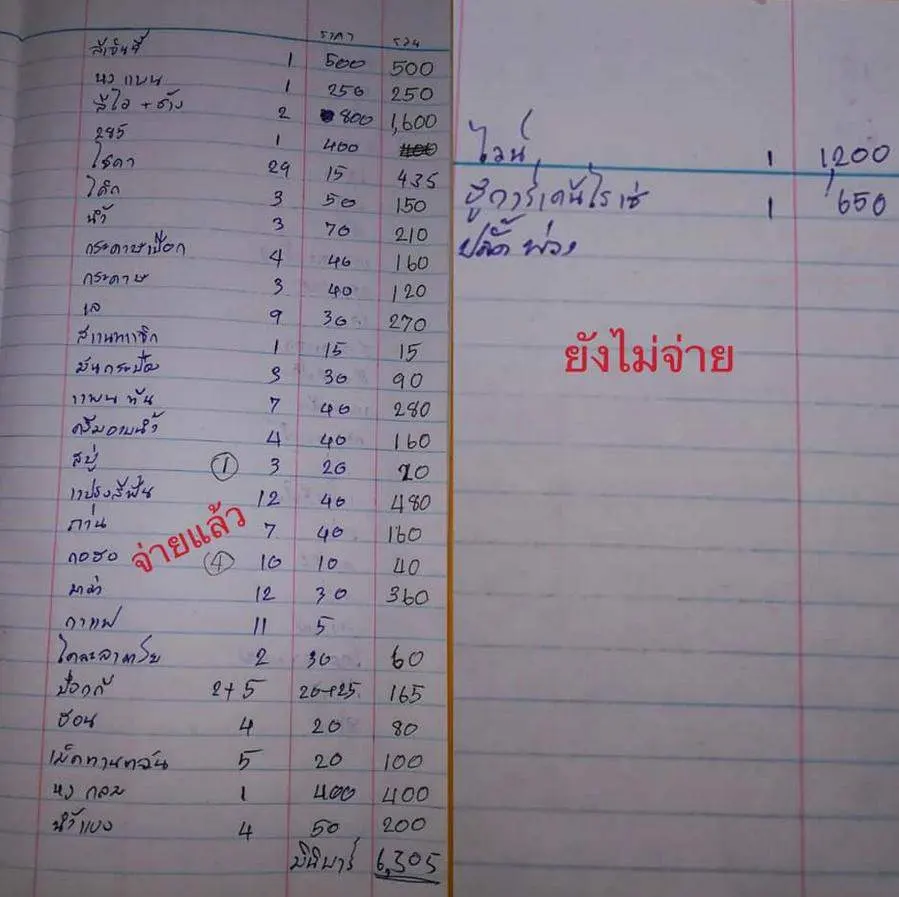 ราคา รวม
สีเงินนี้ 1 500 500
หงแบน 1 250 250
ลีโอ + ช้าง 2 800 1,600
285 1 400 400
โซดา 29 15 435
โค้ก 3 50 150
น้ำ 3 70 210
กระดาษเปียก 4 40 160
กระดาษ 3 40 120
เล 9 30 270
สแนทแจ๊ก 1 15 15
มันกระป๋อง 3 30 90
แพนทีน 7 40 280
ครีมอาบน้ำ 4 40 160
สบู่ ① 3 20 20
แปรงสีฟัน 12 40 480
ถ่าน 7 40 160
กอฮอ ④ 10 10 40
มาม่า 12 30 360
กาแฟ 11 5
2 30 60
ป๊อกกี้ 2+5 20+25 165
ฮอน 4 20 80
เม็ดทานตะวัน 5 20 100
หงกลม 1 400 400
น้ำแดง 4 50 200
มินิบาร์ 6,305
จ่ายแล้ว
ไวน์ 1 1,200
ฮูการ์เด้นโรเซ่ 1 650
ปลั๊กพ่วง
ยังไม่จ่าย